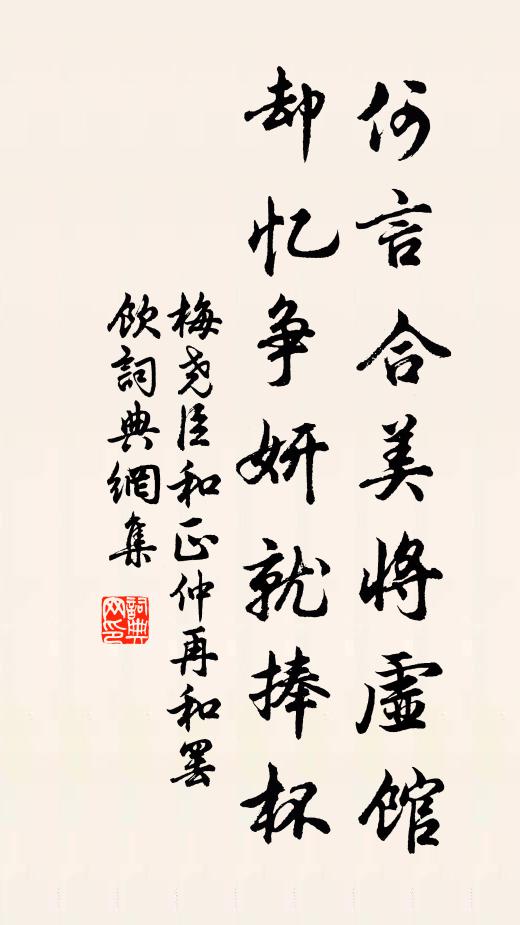 何言合美将虚馆
却忆争妍就捧杯
梅尧臣和正仲再和罢
饮詞典網集
詞典网印